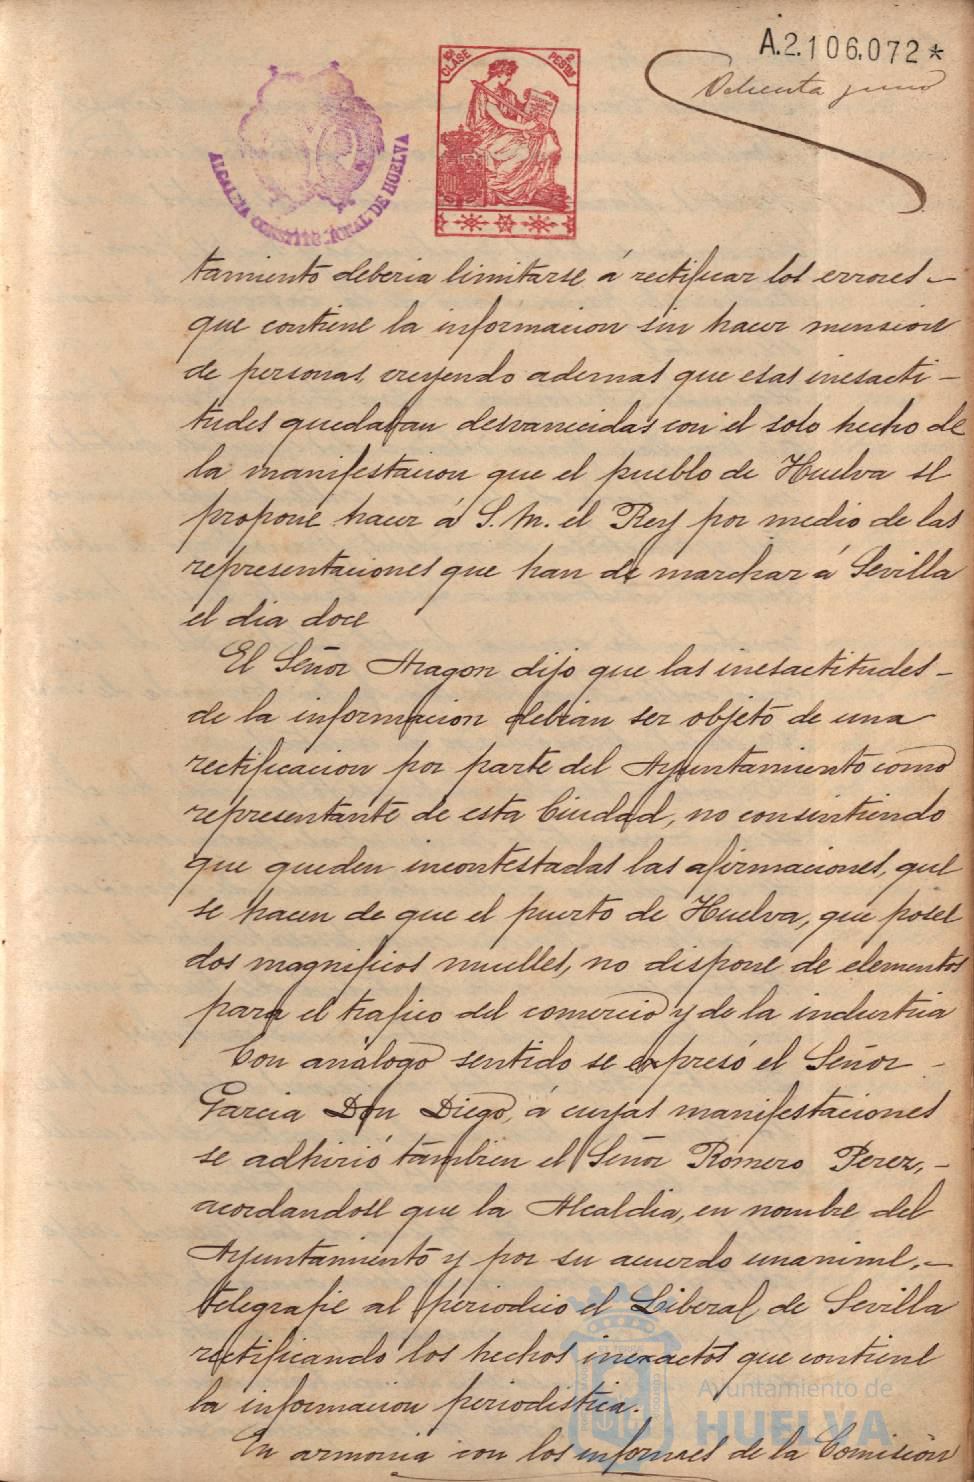 A.2.106.072*
Ochenta y uno
10ª CLASE
2 PESETAS
ALCALDIA CONSTITUCIONAL DE HUELVA
tamiento deberia limitarse á rectificar los errores -
que contiene la informacion sin hacer mension
de personas, creyendo ademas que esas inesacti -
tudes quedaran desvanecidas con el solo hecho de
la manifestacion que el pueblo de Huelva se
propone hacer á S. M. el Rey por medio de las
representaciones que han de marchar á Sevilla
el dia doce
El Señor Aragon dijo que las inesactitudes -
de la informacion debian ser objeto de una
rectificacion por parte del Ayuntamiento como
representante de esta Ciudad, no consintiendo
que queden incontestadas las afirmaciones, que
se hacen de que el puerto de Huelva, que posee
dos magnificos muelles, no dispone de elementos
para el trafico del comercio y de la industria
Con análogo sentido se expresó el Señor -
Garcia Don Diego, á cuyas manifestaciones
se adhirió tambien el Señor Romero Perez, -
acordandose que la Alcaldia, en nombre del
Ayuntamiento y por su acuerdo unanime, -
telegrafie al periodico el Liberal, de Sevilla
rectificando los hechos inexactos que contiene
la informacion periodistica.
En armonia con los informes de la Comisión
Ayuntamiento de
HUELVA